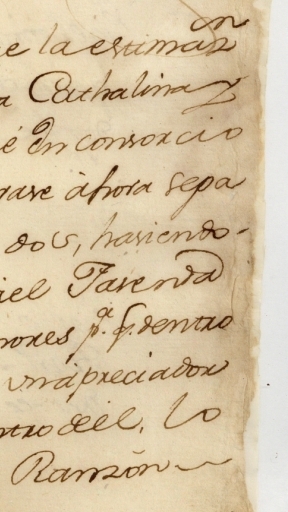 e la estimaⁿ
a Cathalina
é En consorcio
rase àhora sepa
dos, haviendo-
iel Fasenda
nores pª. q. dentro
un apreciador
ntro deel, lo
Ramón